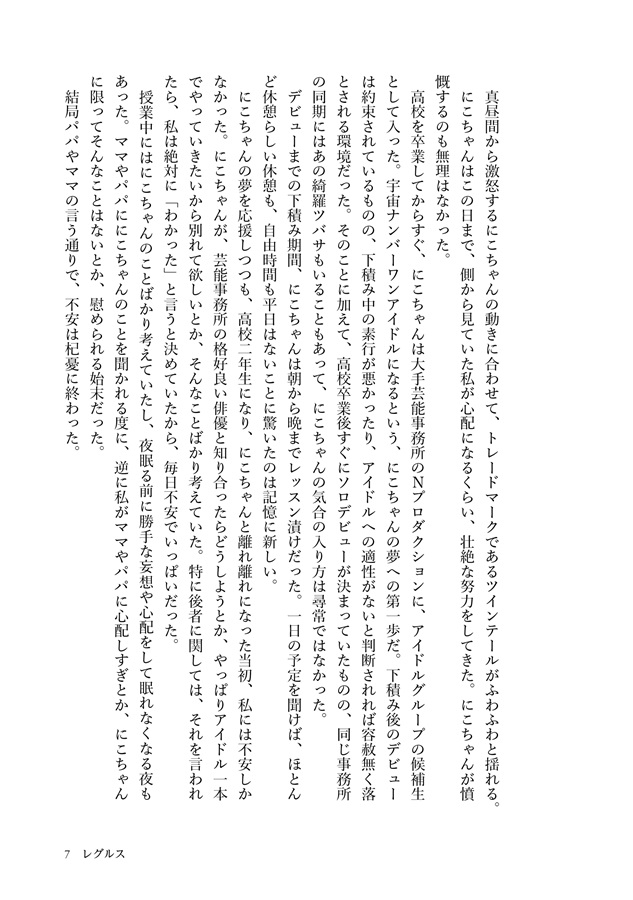 真昼間から激怒するにこちゃんの動きに合わせて、トレードマークであるツインテールがふわふわと揺れる。
にこちゃんはこの日まで、側から見ていた私が心配になるくらい、壮絶な努力をしてきた。にこちゃんが憤
慨するのも無理はなかった。
高校を卒業してからすぐ、にこちゃんは大手芸能事務所のＮプロダクションに、アイドルグループの候補生
として入った。宇宙ナンバーワンアイドルになるという、にこちゃんの夢への第一歩だ。下積み後のデビュー
は約束されているものの、下積み中の素行が悪かったり、アイドルへの適性がないと判断されれば容赦無く落
とされる環境だった。そのことに加えて、高校卒業後すぐにソロデビューが決まっていたものの、同じ事務所
の同期にはあの綺羅ツバサもいることもあって、にこちゃんの気合の入り方は尋常ではなかった。
デビューまでの下積み期間、にこちゃんは朝から晩までレッスン漬けだった。一日の予定を聞けば、ほとん
ど休憩らしい休憩も、自由時間も平日はないことに驚いたのは記憶に新しい。
にこちゃんの夢を応援しつつも、高校二年生になり、にこちゃんと離れ離れになった当初、私には不安しか
なかった。にこちゃんが、芸能事務所の格好良い俳優と知り合ったらどうしようとか、やっぱりアイドル一本
でやっていきたいから別れて欲しいとか、そんなことばかり考えていた。特に後者に関しては、それを言われ
たら、私は絶対に「わかった」と言うと決めていたから、毎日不安でいっぱいだった。
授業中にはにこちゃんのことばかり考えていたし、夜眠る前に勝手な妄想や心配をして眠れなくなる夜も
あった。ママやパパににこちゃんのことを聞かれる度に、逆に私がママやパパに心配しすぎとか、にこちゃん
に限ってそんなことはないとか、慰められる始末だった。
結局パパやママの言う通りで、不安は杞憂に終わった。
7 レグルス